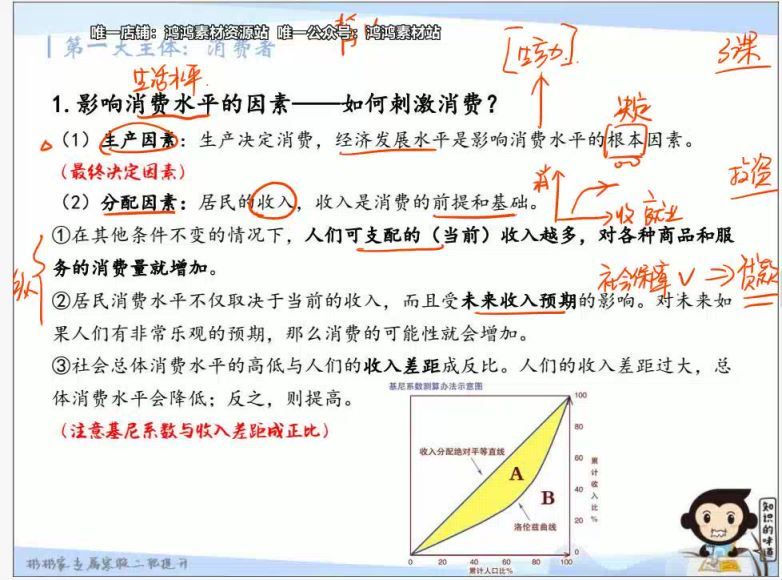 唯一店铺：鸿鸿素材资源站 唯一公众号：鸿鸿素材站
第一大主体：消费者
生活水平
[生产力]
3课
1.影响消费水平的因素——如何刺激消费？
决定
（1）生产因素：生产决定消费，经济发展水平是影响消费水平的根本因素。
（最终决定因素）
投资
消
（2）分配因素：居民的收入，收入是消费的前提和基础。
收 就业
①在其他条件不变的情况下，人们可支配的（当前）收入越多，对各种商品和服
务的消费量就增加。
社会保障 ⇒贷款
②居民消费水平不仅取决于当前的收入，而且受未来收入预期的影响。对未来如
果人们有非常乐观的预期，那么消费的可能性就会增加。
③社会总体消费水平的高低与人们的收入差距成反比。人们的收入差距过大，总
体消费水平会降低；反之，则提高。
（注意基尼系数与收入差距成正比）
基尼系数测算办法示意图
100
80
60
40
20
0
收入分配绝对平等直线
A
B
洛伦兹曲线
累计收入比%
0 20 40 60 80 100
累计人口比%
知识的味道